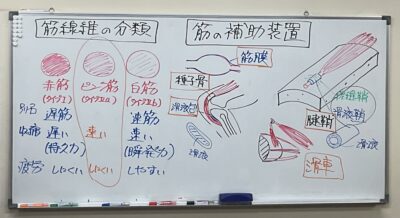 筋線維の分類
赤筋 ピンク筋 白筋
(タイプⅠ) (タイプⅡa) (タイプⅡb)
別名 遅筋 速筋
収縮 遅い 速い 速い
(持久力) (瞬発力)
疲労 しにくい しにくい しやすい
筋の補助装置
筋膜
種子骨
滑液包
滑液
線維鞘
滑液鞘
腱鞘
滑液
滑車